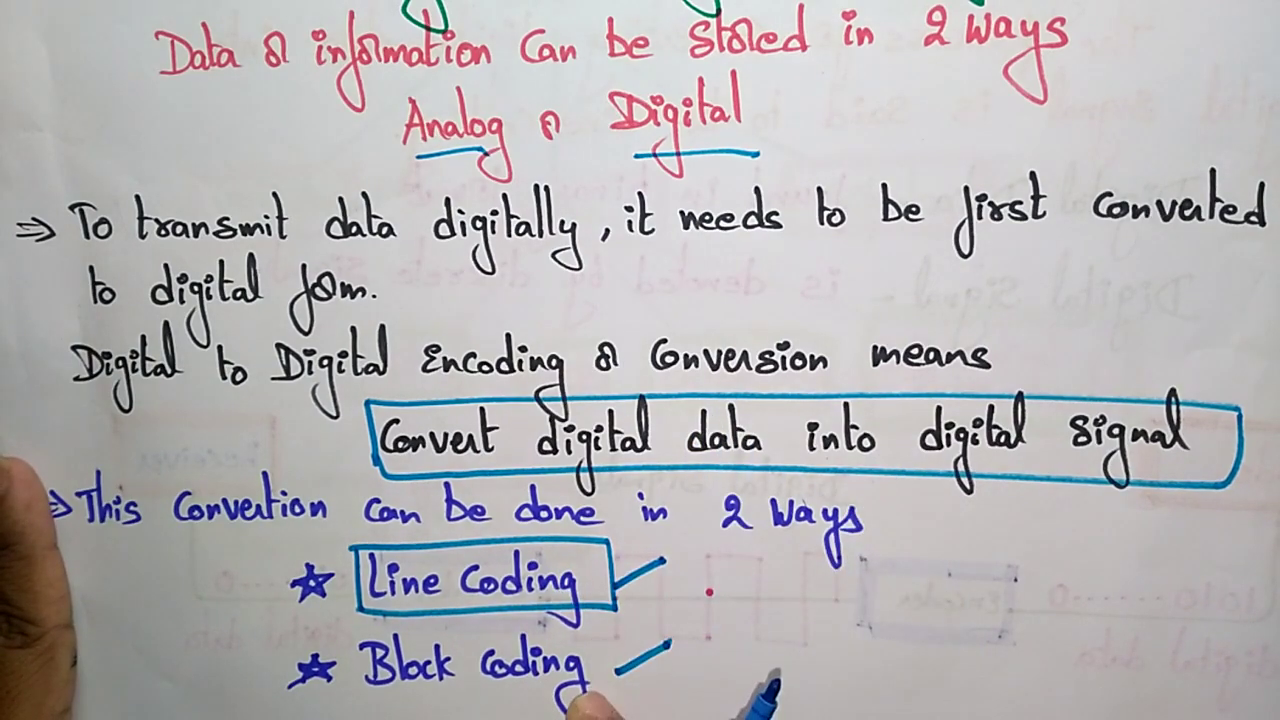 Data or information can be stored in 2 ways
Analog or Digital
⇒ To transmit data digitally, it needs to be first converted
to digital form.
Digital to Digital Encoding or Conversion means
Convert digital data into digital signal
⇒ This Convertion can be done in 2 ways
☆ Line Coding
☆ Block Coding